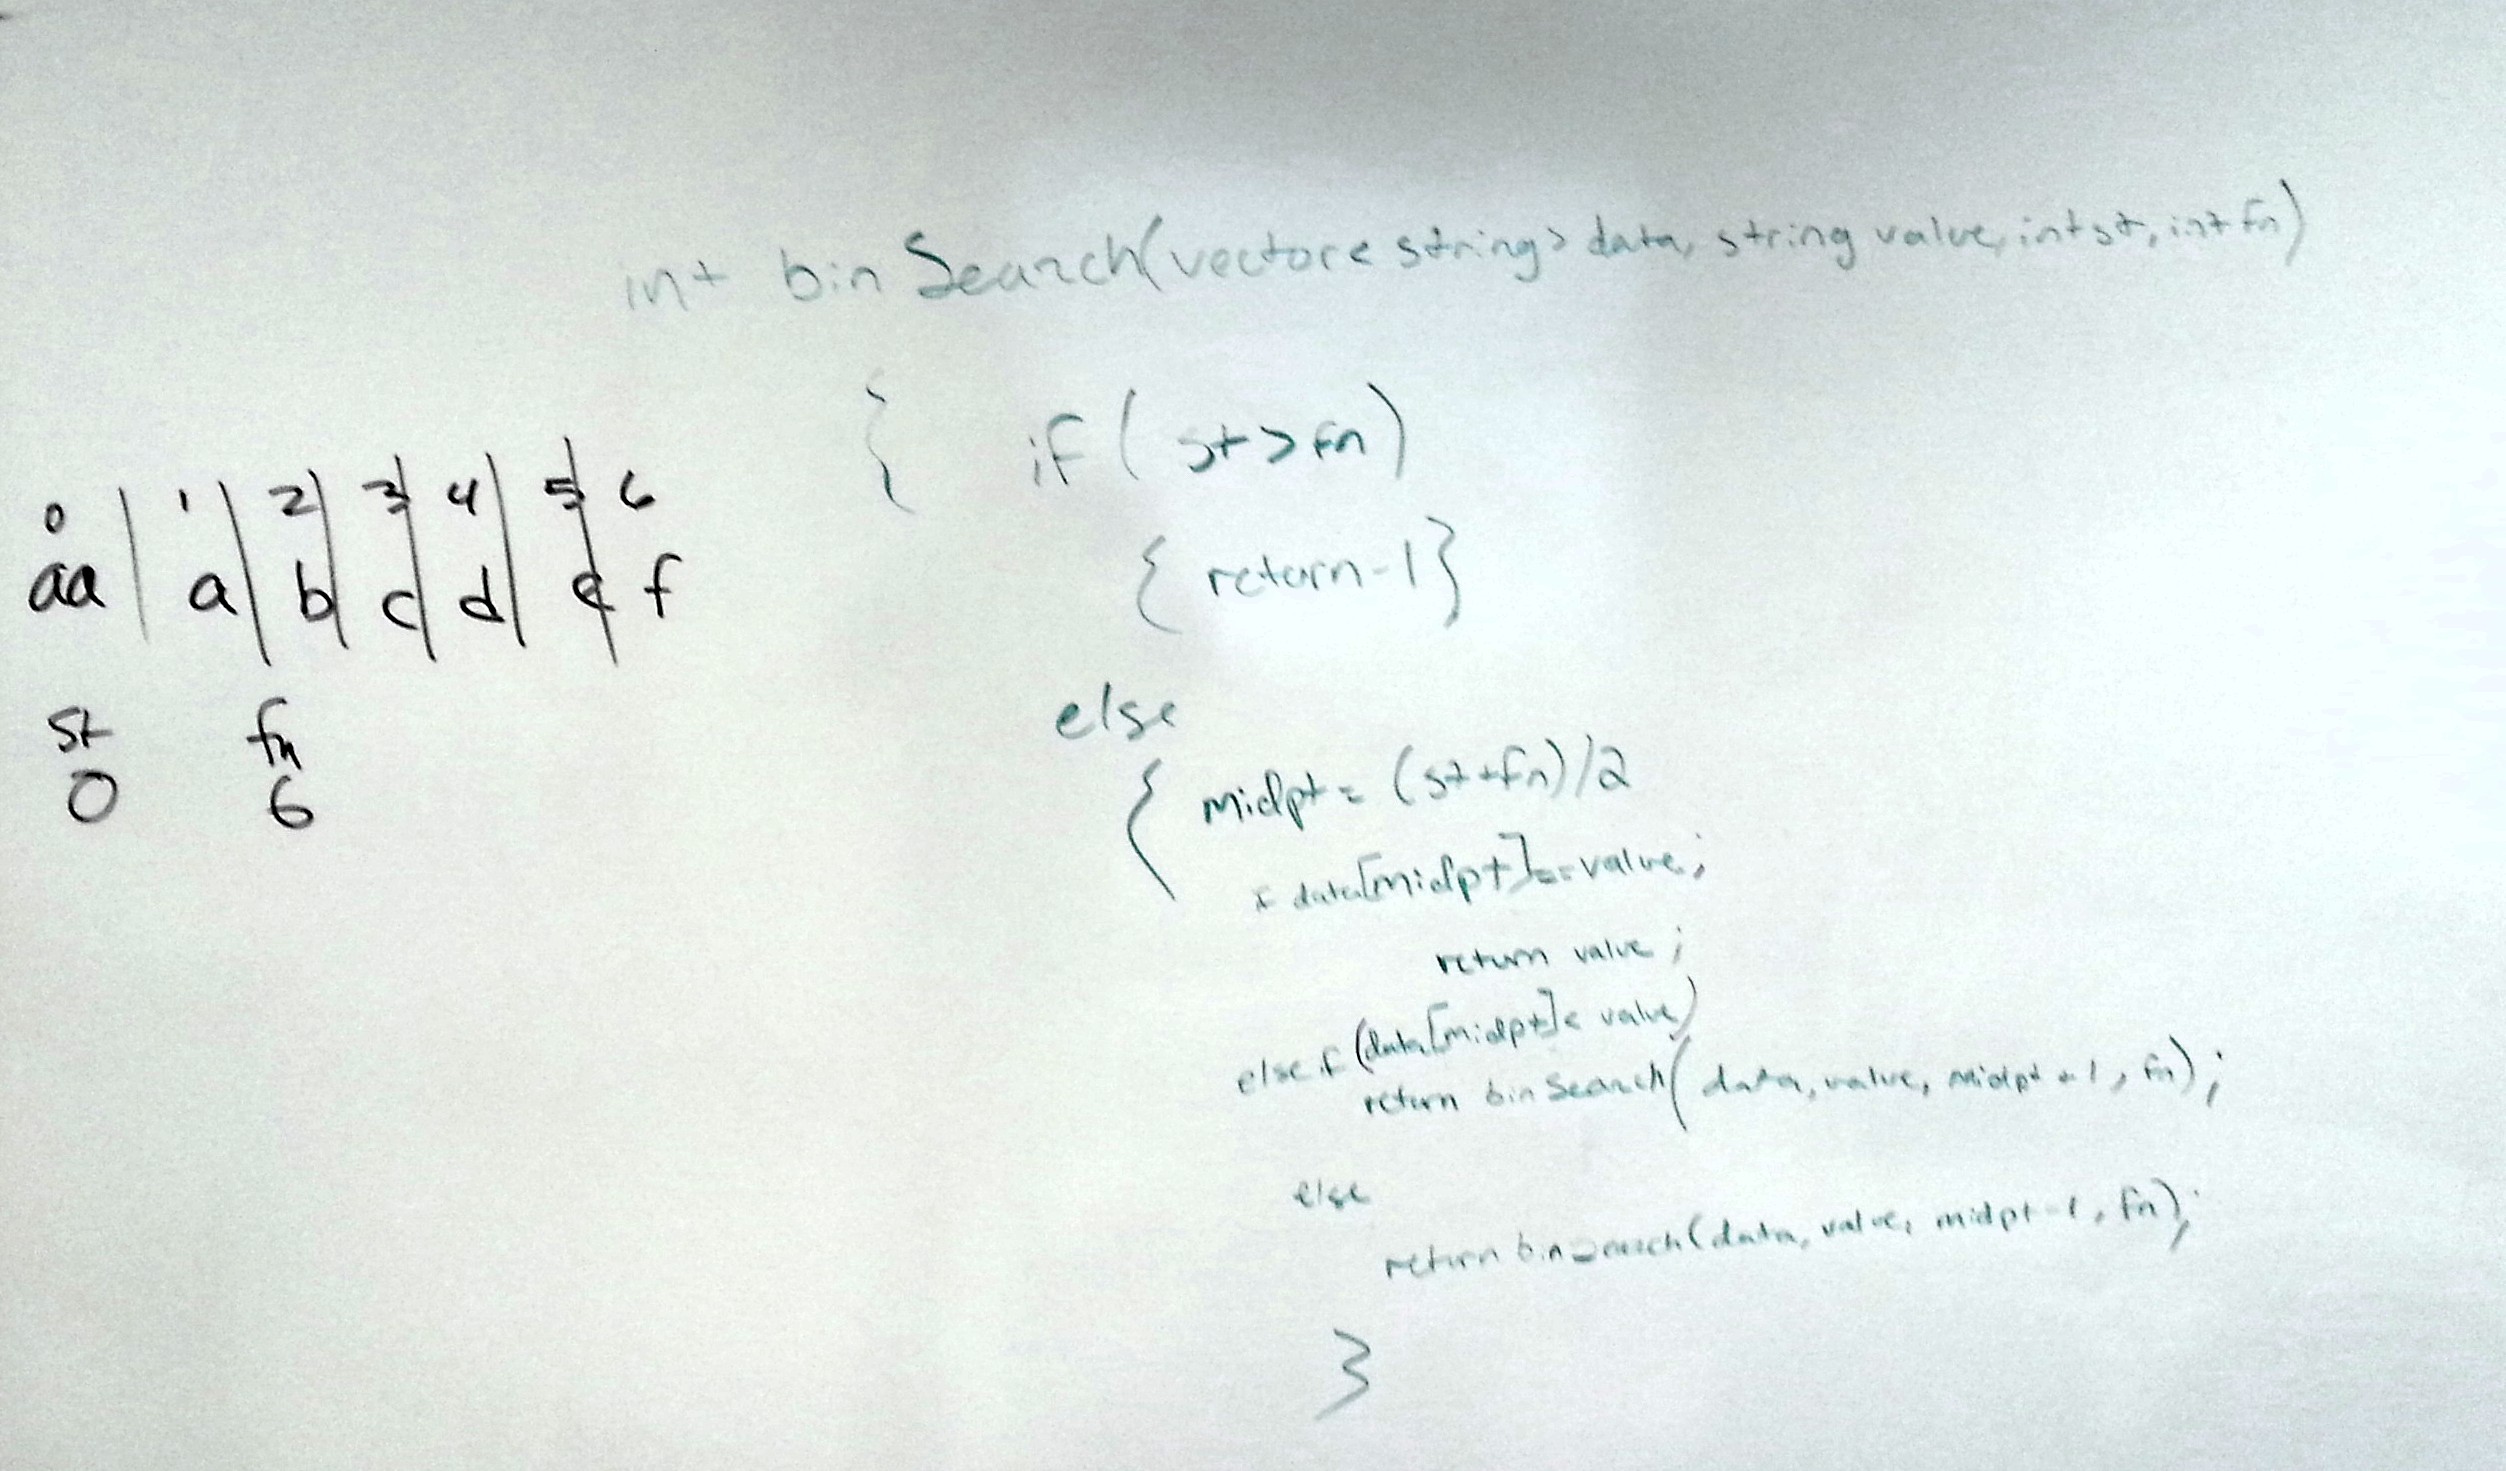 int binSearch(vector<string> data, string value, int st, int fn)
{ if( st > fn)
{ return -1}
else
{ midpt = (st+fn)/2
if data[midpt]==value;
return value;
else if (data[midpt]< value)
return binSearch( data, value, midpt+1, fn);
else
return binSearch(data, value, midpt-1, fn);
}
0 | 1 | 2 | 3 | 4 | 5 | 6
aa | a | b | c | d | e | f
st fn
0 6